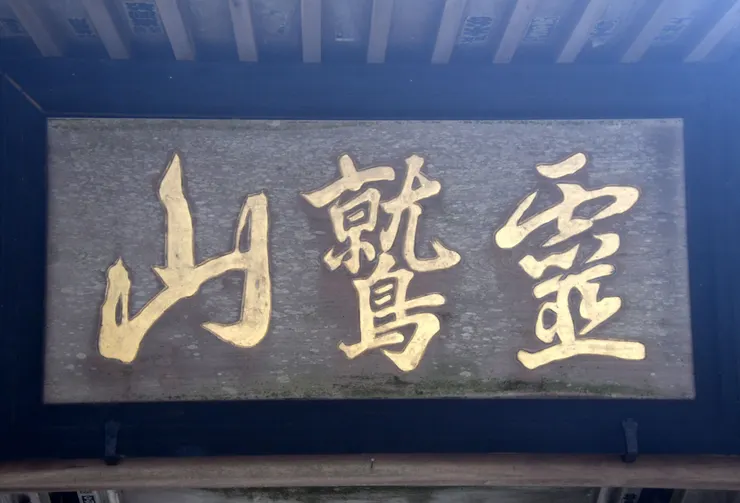 靈鷲山